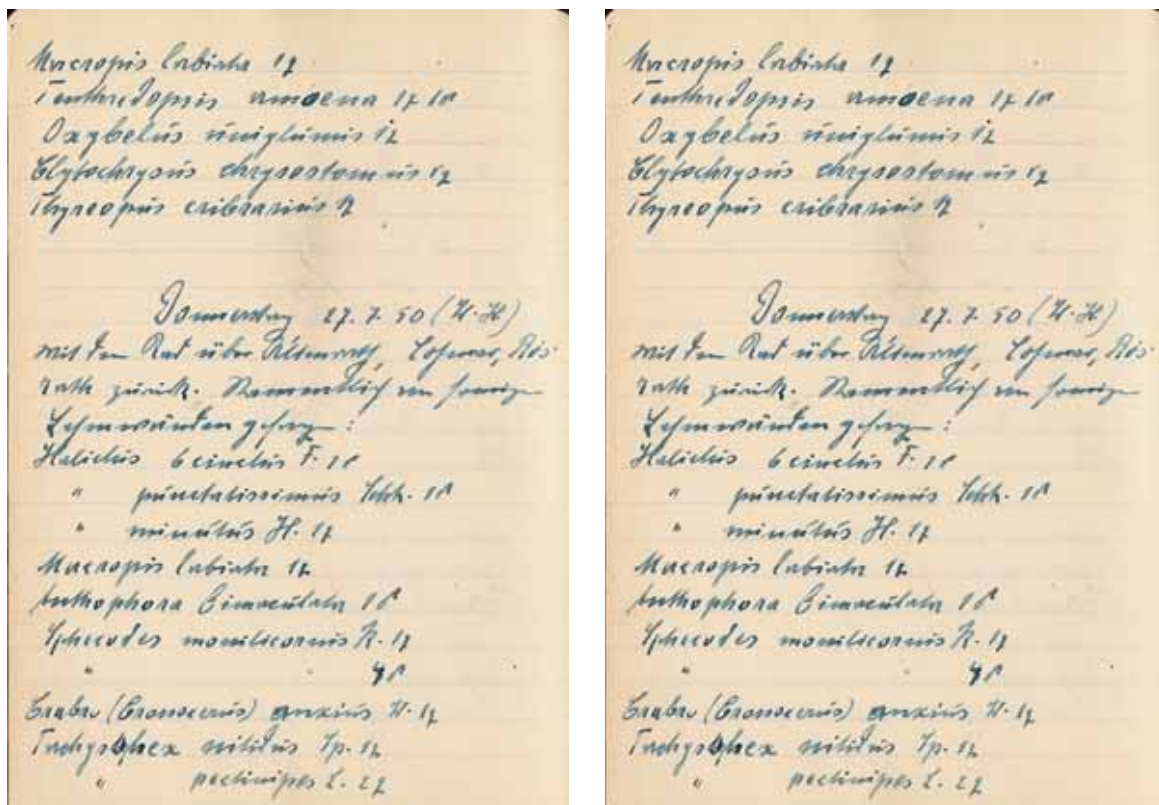 Macropis labiata 1♀
Tenthredopsis amoena 1♀ 1♂
Oxybelus uniglumis 1♀
Clytochrysus chrysostomus 1♀
Thyreopus cribrarius ♀
Donnerstag 27. 7. 50 (W. H)
mit dem Rad über Altenrath, Lohmar, Rös-
rath zurück. Namentlich an sonnigen
Lehmwänden gefangen:
Halictus 6 cinctus F. 1♂
" punctatissimus Schk. 1♂
" minutus K. 1♀
Macropis labiata 1♀
Anthophora bimaculata 1♂
Sphecodes monilicornis K. 1♀
" 4♂
Crabro (Crossocerus) anxius W. 1♀
Tachysphex nitidus Sp. 1♀
" pectinipes L. 2♀
Macropis labiata 1♀
Tenthredopsis amoena 1♀ 1♂
Oxybelus uniglumis 1♀
Clytochrysus chrysostomus 1♀
Thyreopus cribrarius ♀
Donnerstag 27. 7. 50 (W. H)
mit dem Rad über Altenrath, Lohmar, Rös-
rath zurück. Namentlich an sonnigen
Lehmwänden gefangen:
Halictus 6 cinctus F. 1♂
" punctatissimus Schk. 1♂
" minutus K. 1♀
Macropis labiata 1♀
Anthophora bimaculata 1♂
Sphecodes monilicornis K. 1♀
" 4♂
Crabro (Crossocerus) anxius W. 1♀
Tachysphex nitidus Sp. 1♀
" pectinipes L. 2♀